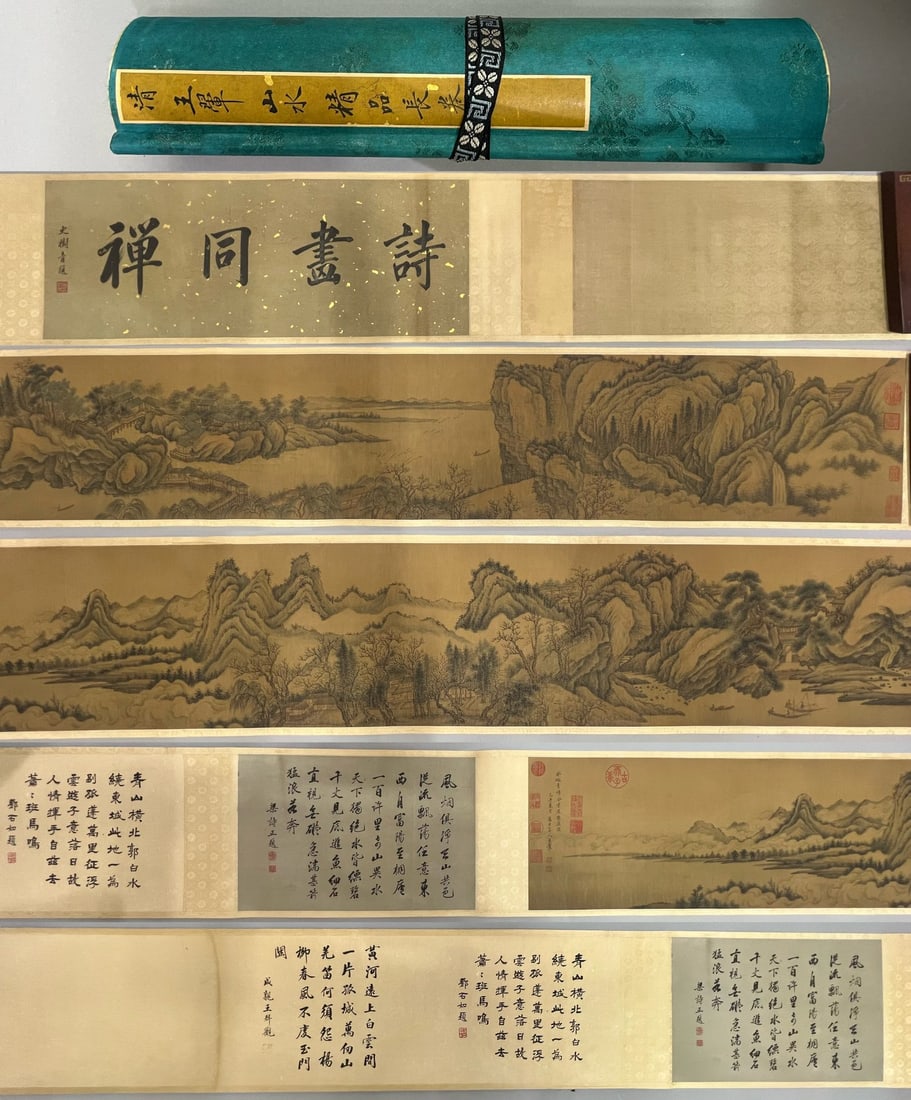 清 王翬 山水精品長卷
詩畫同禪
史樹青題
風烟俱淨天山共色
從流飄蕩任意東
西自富陽至桐廬
一百许里奇山異水
天下獨絶水皆縹碧
千丈見底遊魚細石
直視無礙急湍甚箭
猛浪若奔
梁詩正題
青山橫北郭白水
繞東城此地一為
别孤蓬萬里征浮
雲遊子意落日故
人情揮手自兹去
蕭:班馬鳴
鄧石如題
風烟俱淨天山共色
從流飄蕩任意東
西自富陽至桐廬
一百许里奇山異水
天下獨絶水皆縹碧
千丈見底遊魚細石
直視無礙急湍甚箭
猛浪若奔
梁詩正題
青山橫北郭白水
繞東城此地一為
别孤蓬萬里征浮
雲遊子意落日故
人情揮手自兹去
蕭:班馬鳴
鄧石如題
黄河遠上白雲間
一片孤城萬仞山
羌笛何須怨楊
柳春風不度玉門
關
成親王拜觀